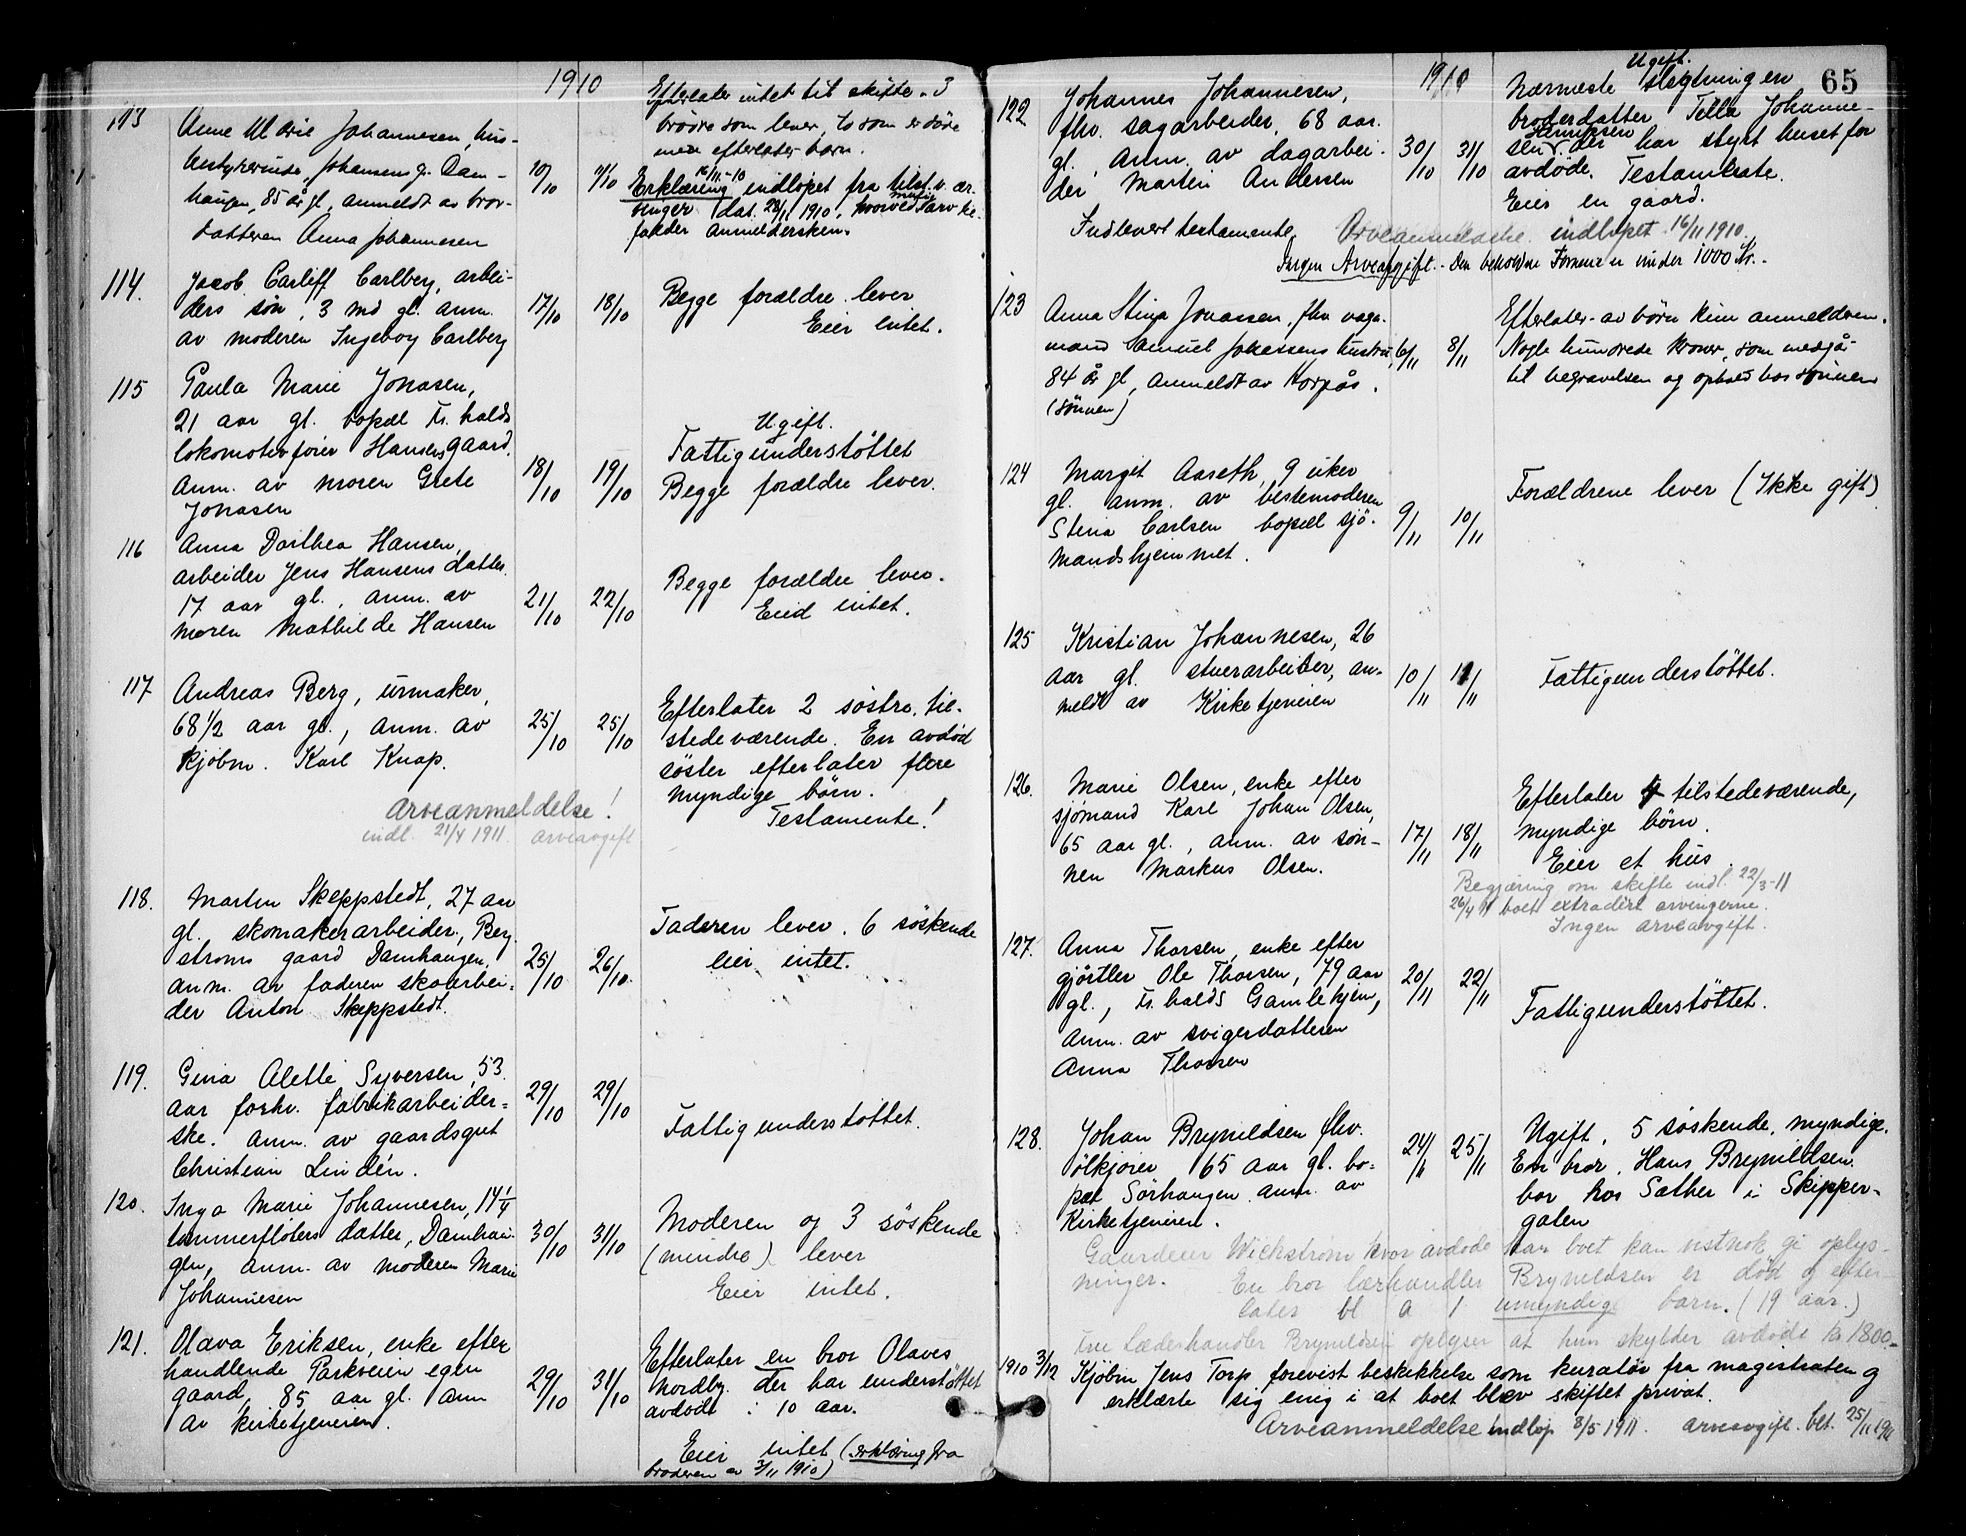 1910
113
Anne Marie Johannesen, hus-
bestyrerinde, Johansens g. Dam-
haugen, 85 år gl, anmeldt av bror-
datteren Anna Johannesen
10/10
11/10
Efterlater intet til skifte. 3
brødre som lever, to som er døde
men efterlater barn.
16/11-10
Erklæring indløpet fra tilst. v. ar-
vinger dat. 28/11 1910, hvorved arv be-
falder anmeldersken.
114.
Jacob Carliff Carlberg, arbei-
ders søn, 3 md gl. anm.
av moderen Ingeborg Carlberg
17/10
18/10
Begge forældre lever
Eier intet.
115
Paula Marie Jonasen,
21 aar gl. bopæl Fr. halds
lokomotivfører Hansens gaard.
Anm. av moren Grete
Jonasen
18/10
19/10
Ugift.
Fattigunderstöttet
Begge forældre lever.
116
Anna Dorthea Hansen,
arbeider Jens Hansens datter
17 aar gl., anm. av
moren Mathilde Hansen
21/10
22/10
Begge forældre lever.
Eied intet.
117
Andreas Berg, urmaker,
68 1/2 aar gl., anm. av
kjøbm. Karl Knap.
25/10
25/10
Efterlater 2 søstre, til-
stedeværende. En avdød
søster efterlater flere
myndige børn.
Testamente!
Arveanmeldelse!
indl. 21/4 1911. arveavgift
118.
Martin Skeppstedt, 27 aar
gl. skomakerarbeider, Berg-
strøms gaard Damhaugen,
anm. av faderen skoarbei-
der Anton Skeppstedt.
25/10
26/10.
Faderen lever. 6 söskende
eier intet.
119.
Gina Alette Syversen, 53
aar forhv. fabrikarbeider-
ske. Anm. av gaardsgut
Christian Lindén.
29/10
29/10
Fattigunderstøttet.
120.
Inga Marie Johannesen, 14 1/4
tømmerfløters datter, Damhau-
gen, anm. av moderen Marie
Johannesen
30/10
31/10
Moderen og 3 söskende
(mindre) lever
Eier intet.
121.
Olava Eriksen, enke efter
handlende Parkveien egen
gaard, 85 aar gl. anm
av kirketjeneren.
29/10
31/10
Efterlater en bror Olaves
Nordby. der har understöttet
avdøde i 10 aar.
Eier intet (erklæring fra
broderen av 3/11 1910)
65
1910
122
Johannes Johannesen,
fhv. sagarbeider, 68 aar.
gl., anm. av dagarbei-
der Martin Andersen
30/10
31/10
Ugift.
Nærmeste slegtning en
broderdatter Tilla Johanne-
sen Henriksen der har styrt huset for
avdøde. Testamente.
Eier en gaard.
Indlevert testamente. Arveanmeldelse indløpet 16/11 1910.
Ingen Arveavgift. - Den beholdne Formue er under 1000 Kr. -
123
Anna Stina Jonassen, fhv vog-
mand Samuel Johansens hustru,
84 år gl, anmeldt av Korpås.
(sönnen)
6/11
8/11
Efterlater av börn kun anmelderen.
Nogle hundrede kroner, som medgår
til begravelsen og ophold hos sönnen
124
Margit Aaseth, 9 uker
gl. anm. av bestemoderen
Stina Carlsen bopæl sjø-
mandshjemmet.
9/11
10/11
Forældrene lever (Ikke gift)
125
Kristian Johannesen, 26
aar gl. stuerarbeider, an-
meldt av Kirketjeneren
10/11
11/11
Fattigunderstöttet.
126.
Marie Olsen, enke efter
sjømand Karl Johan Olsen,
65 aar gl., anm. av søn-
nen Markus Olsen.
17/11
18/11
Efterlater 4 tilstedeværende,
myndige børn.
Eier et hus.
Begjæring om skifte indl. 22/3-11
26/4 11 boet extradert arvingerne.
Ingen arveavgift.
127.
Anna Thorsen, enke efter
gjørtler Ole Thorsen, 79 aar
gl., Fr. halds Gamlehjem,
anm. av svigerdatteren
Anna Thorsen
20/11
22/11
Fattigunderstöttet.
128.
Johan Brynildsen fhv.
ølkjører 65 aar gl. bo-
pæl Sörhaugen. anm. av
Kirketjeneren.
24/11
25/11
Ugift. 5 søskende, myndige.
En bror, Hans Brynildsen
bor hos Sæther i Skipper-
gaten
Gaardeier Wickstrøm hvor avdøde har boet kan vistnok gi oplys-
ninger. En bror lærhandler Brynildsen er død og efter-
later bl a 1 umyndigt barn. (19 aar.)
Fru Læderhandler Brynildsen oplyser at hun skylder avdøde kr 1800.-
1910 3/12 Kjøbm Jens Torp forevist beskikkelse som kurator fra magistraten og
erklærte sig enig i at boet blev skiftet privat.
Arveanmeldelse indløp 8/5 1911. arveavgift bet. 25/11 1911